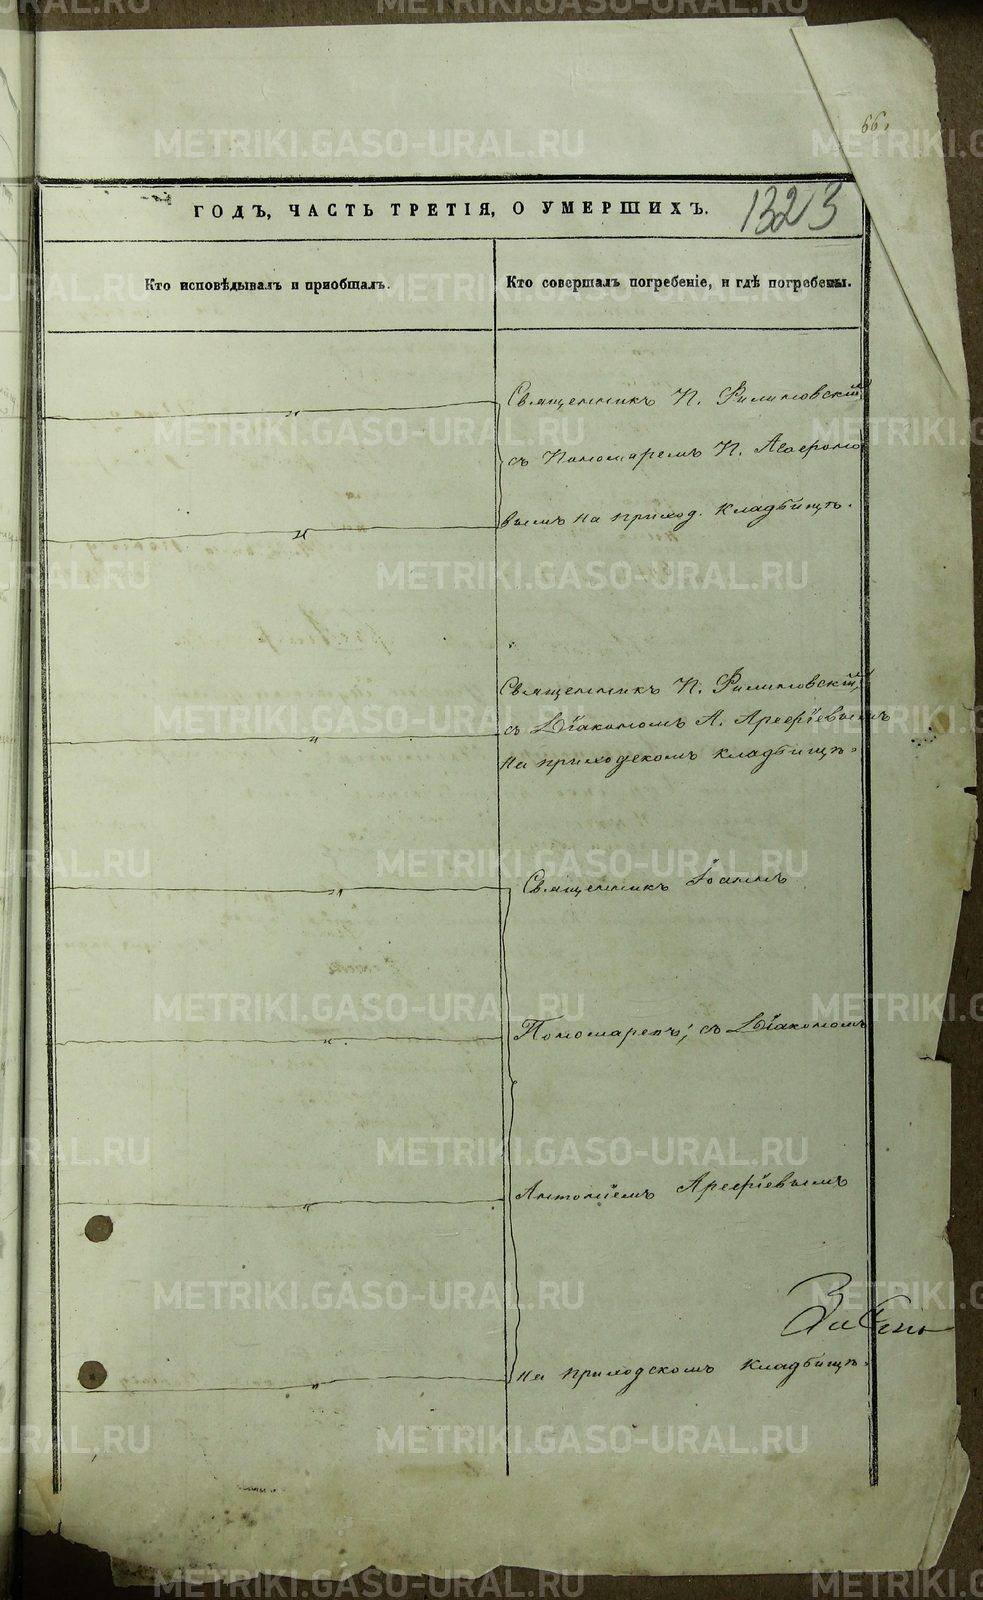 66.
ГОДЪ, ЧАСТЬ ТРЕТІЯ, О УМЕРШИХЪ.
1323
Кто исповѣдывалъ и пріобщалъ.
Кто совершалъ погребеніе, и гдѣ погребены.
Священникъ П. Филиповскій
съ Пономаремъ П.
вымъ на приход. кладбищѣ.
Священникъ П. Филиповскій,
съ Діакономъ А. Арефіевымъ
на приходскомъ кладбищѣ.
Священникъ Іоаннъ
Пономаревъ, съ Діакономъ
Антоніемъ Арефіевымъ
на приходскомъ кладбищѣ.
METRIKI.GASO-URAL.RU